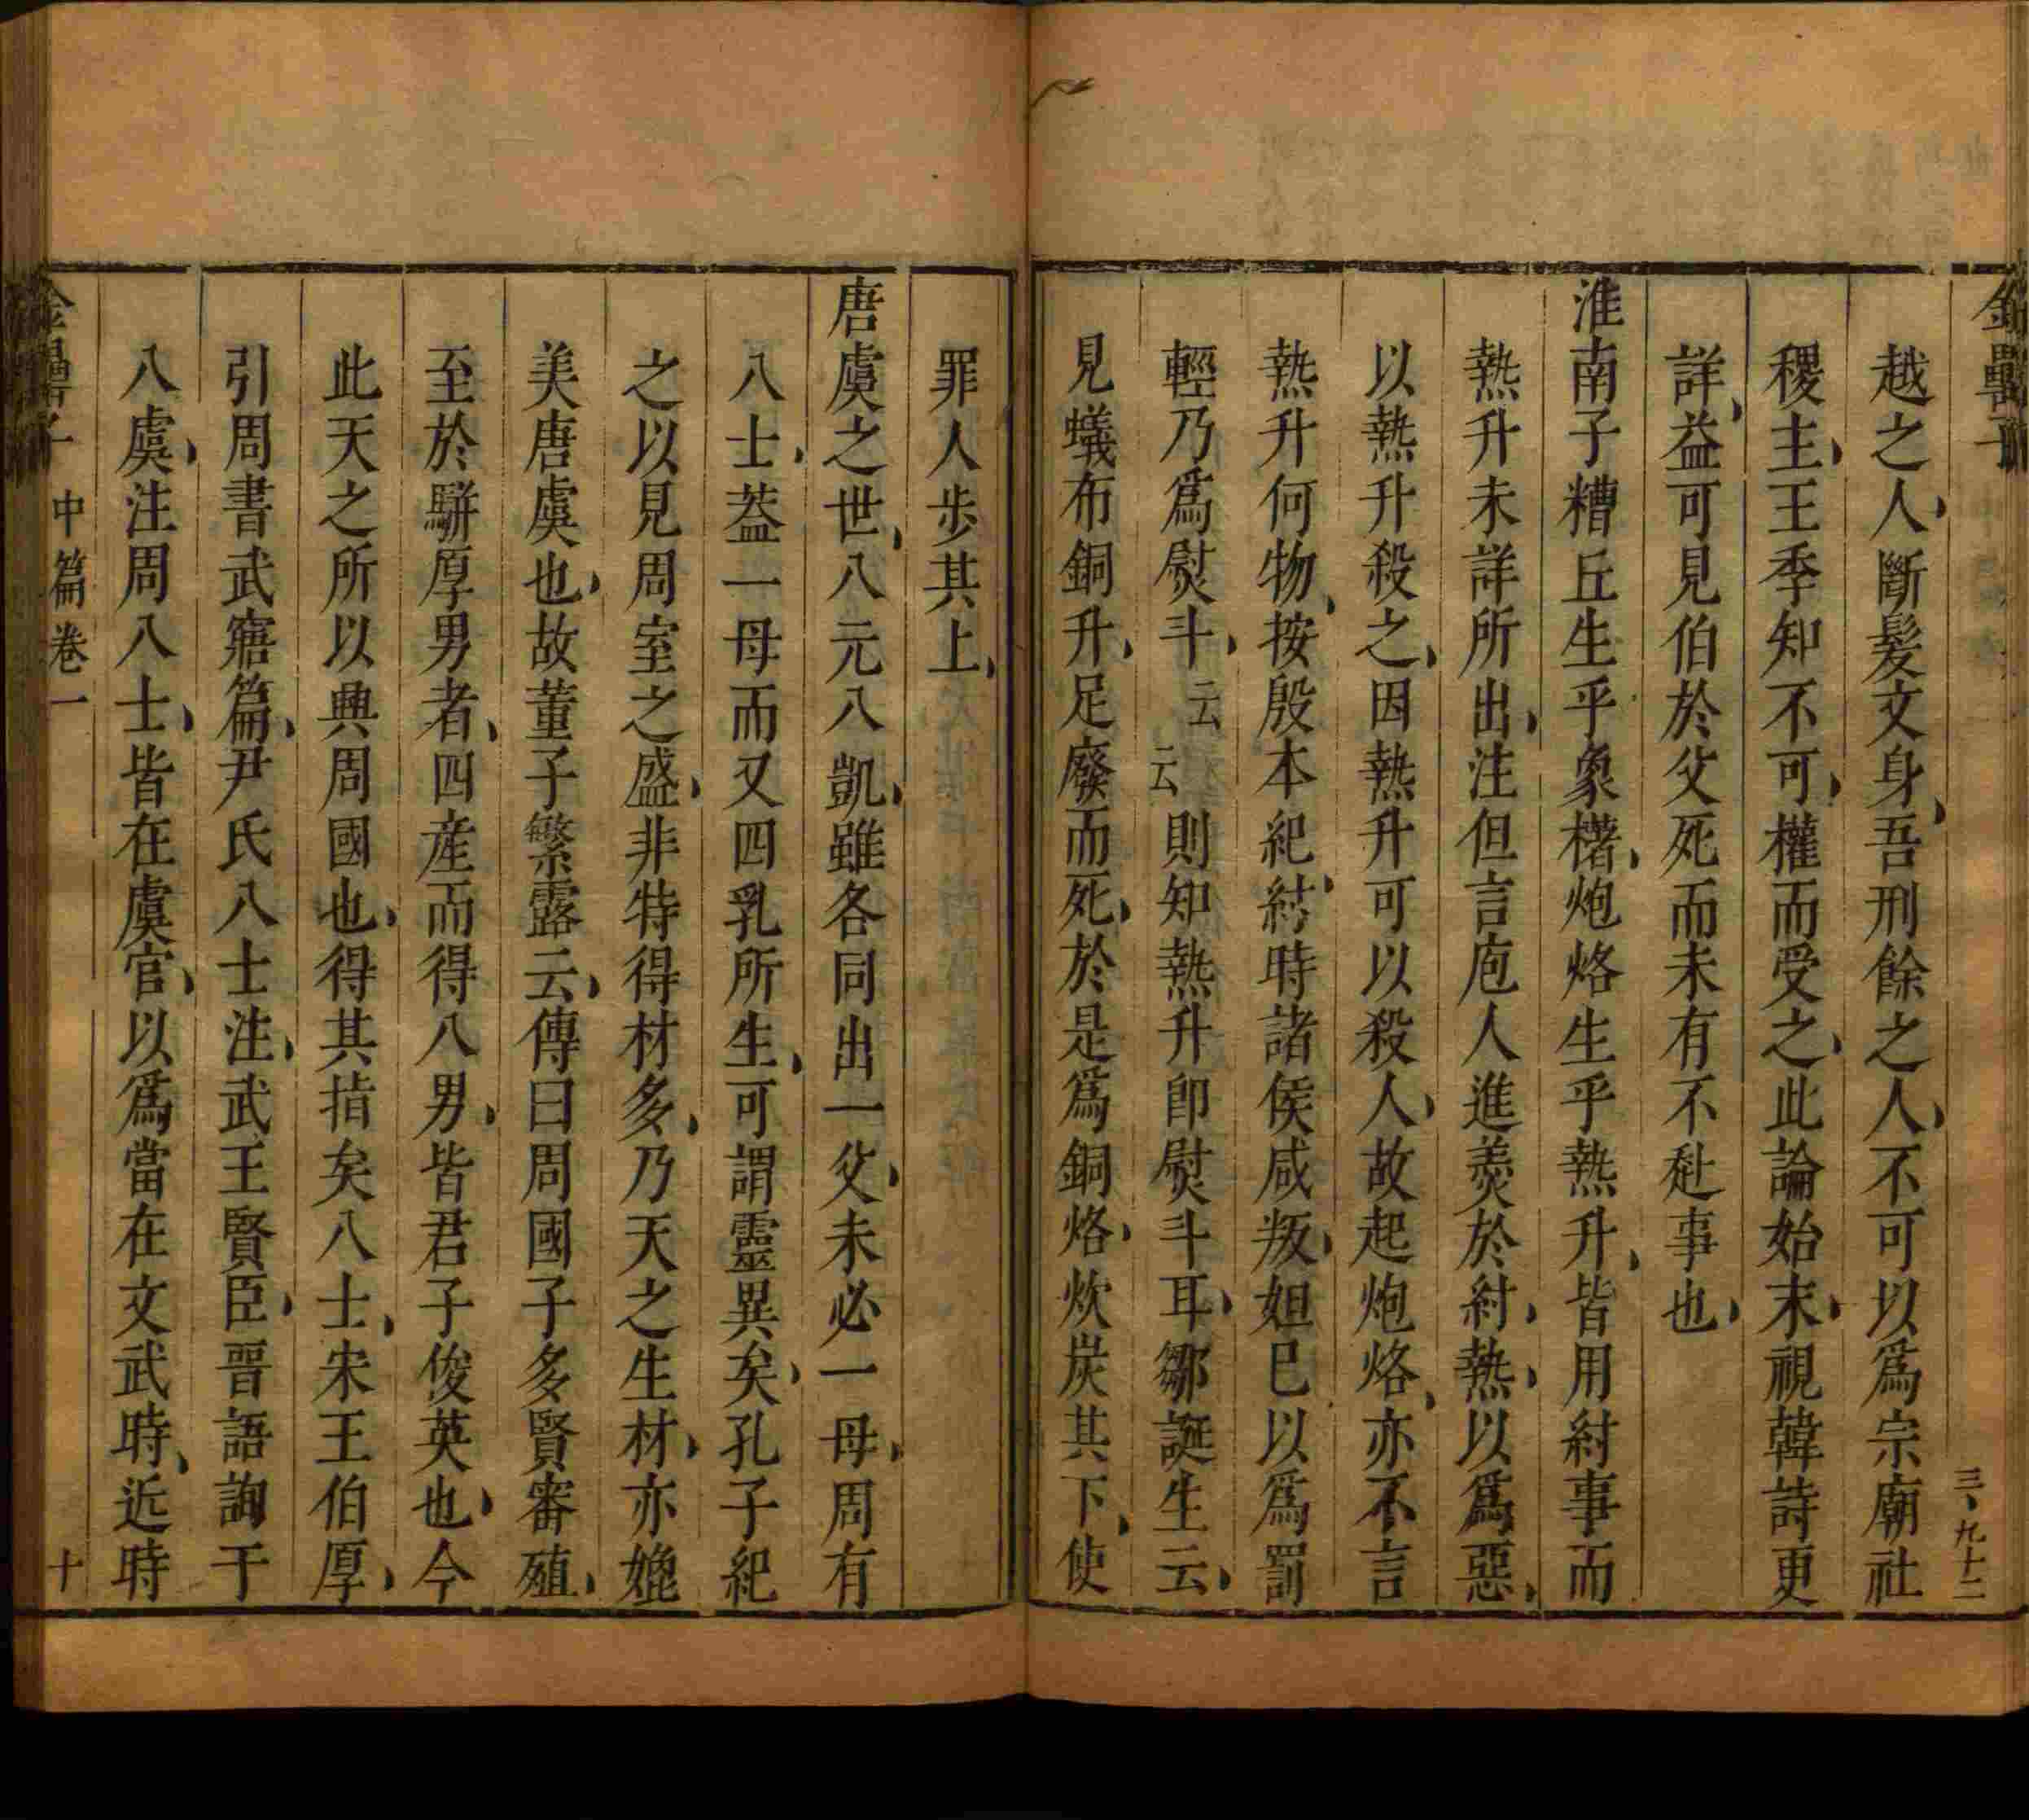 三九十二
越之人斷髮文身吾刑餘之人不可以爲宗廟社
稷主王季知不可權而受之此論始末視韓詩更
詳益可見伯於父死而未有不赴事也
淮南子糟丘生乎象櫡炮烙生乎熱升皆用紂事而
熱升未詳所出注但言庖人進羮於紂熱以爲惡
以熱升殺之因熱升可以殺人故起炮烙亦不言
熱升何物按殷本紀紂時諸侯咸叛妲巳以爲罰
輕乃爲熨斗云云則知熱升卽熨斗耳鄒誕生云
見蟻布銅升足廢而死於是爲銅烙炊炭其下使
罪人步其上
唐虞之世八元八凱雖各同出一父未必一母周有
八士葢一母而又四乳所生可謂靈異矣孔子紀
之以見周室之盛非特得材多乃天之生材亦媲
美唐虞也故董子繁露云傳曰周國子多賢審殖
至於騈厚男者四産而得八男皆君子俊英也今
此天之所以興周國也得其指矣八士宋王伯厚
引周書武寤篇尹氏八士注武王賢臣晉語詢于
八虞注周八士皆在虞官以爲當在文武時近時
金罍子 中篇卷一 十